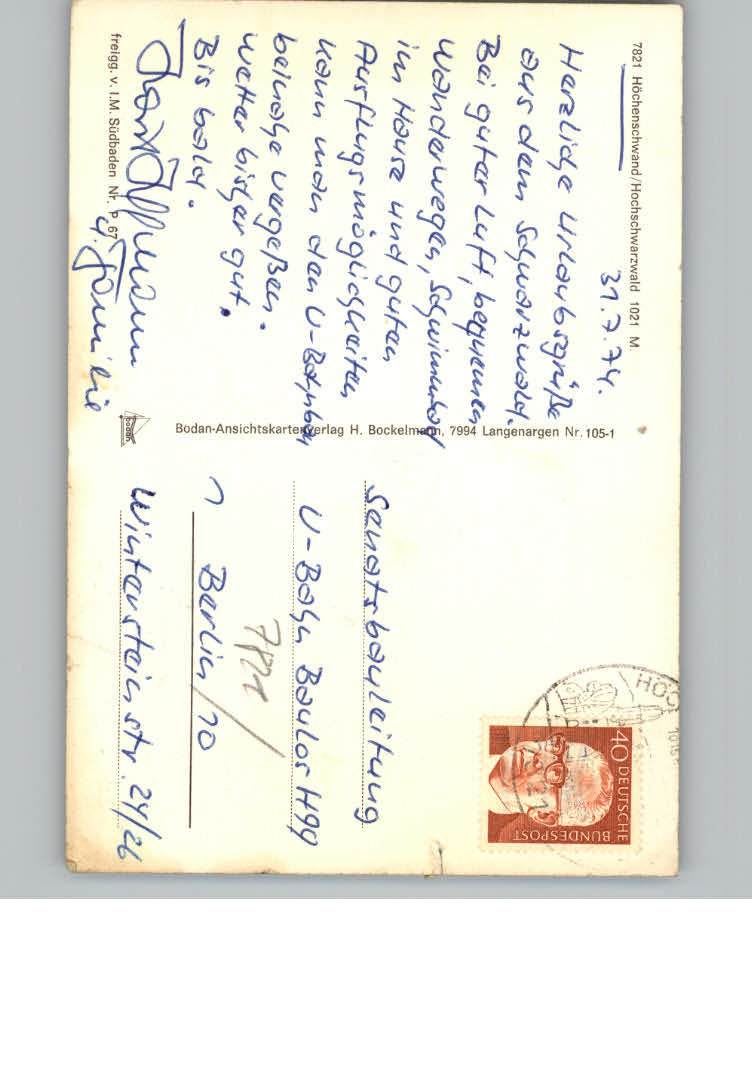 7821 Höchenschwand/Hochschwarzwald 1021 M.
31.7.74.
Herzliche Urlaubsgrüße
aus dem Schwarzwald.
Bei guter Luft, bequemen
Wanderwegen, Schwimmbad
im Hause und guten
Ausflugsmöglichkeiten
kann man den U-Bahnbau
beinahe vergeßen.
Wetter bisher gut.
Bis bald.
u. Familie
freigg. v. I.M. Südbaden Nr. P 67
bodan
Bodan-Ansichtskartenverlag H. Bockelmann, 7994 Langenargen Nr. 105-1
40 DEUTSCHE
BUNDESPOST
HÖC
1015
Senatsbauleitung
U-Bahn Baulos H99
1 Berlin/10
Wintersteinstr. 24/26